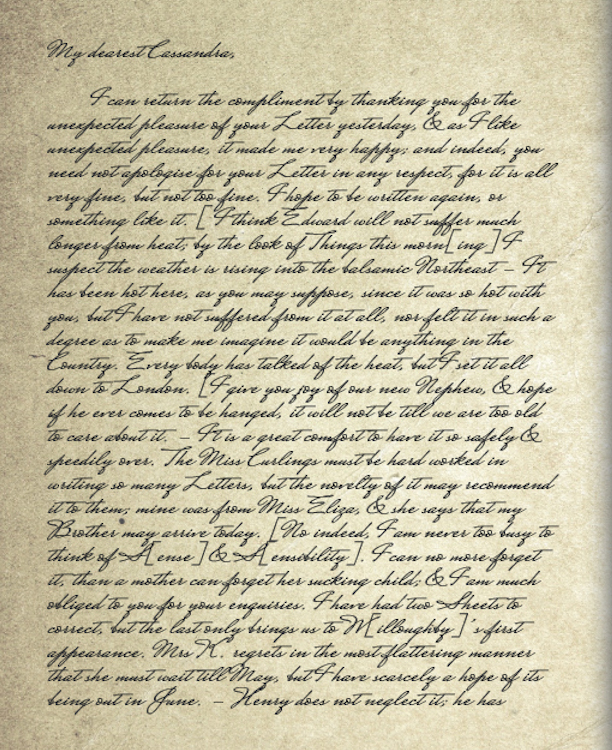 My dearest Cassandra,
I can return the compliment by thanking you for the
unexpected pleasure of your Letter yesterday, & as I like
unexpected pleasure, it made me very happy; and indeed, you
need not apologise for your Letter in any respect, for it is all
very fine, but not too fine. I hope to be written again, or
something like it. [ I think Edward will not suffer much
longer from heat; by the look of Things this morn[ing] I
suspect the weather is rising into the balsamic Northeast – It
has been hot here, as you may suppose, since it was so hot with
you, but I have not suffered from it at all, nor felt it in such a
degree as to make me imagine it would be anything in the
Country. Every body has talked of the heat, but I set it all
down to London. [I give you joy of our new Nephew, & hope
if he ever comes to be hanged, it will not be till we are too old
to care about it. – It is a great comfort to have it so safely &
speedily over. The Miss Curlings must be hard worked in
writing so many Letters, but the novelty of it may recommend
it to them; mine was from Miss Eliza, & she says that my
Brother may arrive today. [No indeed, I am never too busy to
think of S[ense] & S[ensibility]. I can no more forget
it, than a mother can forget her sucking child; & I am much
obliged to you for your enquiries. I have had two Sheets to
correct, but the last only brings us to W[illoughby]'s first
appearance. Mrs K. regrets in the most flattering manner
that she must wait till May, but I have scarcely a hope of its
being out in June. – Henry does not neglect it; he has